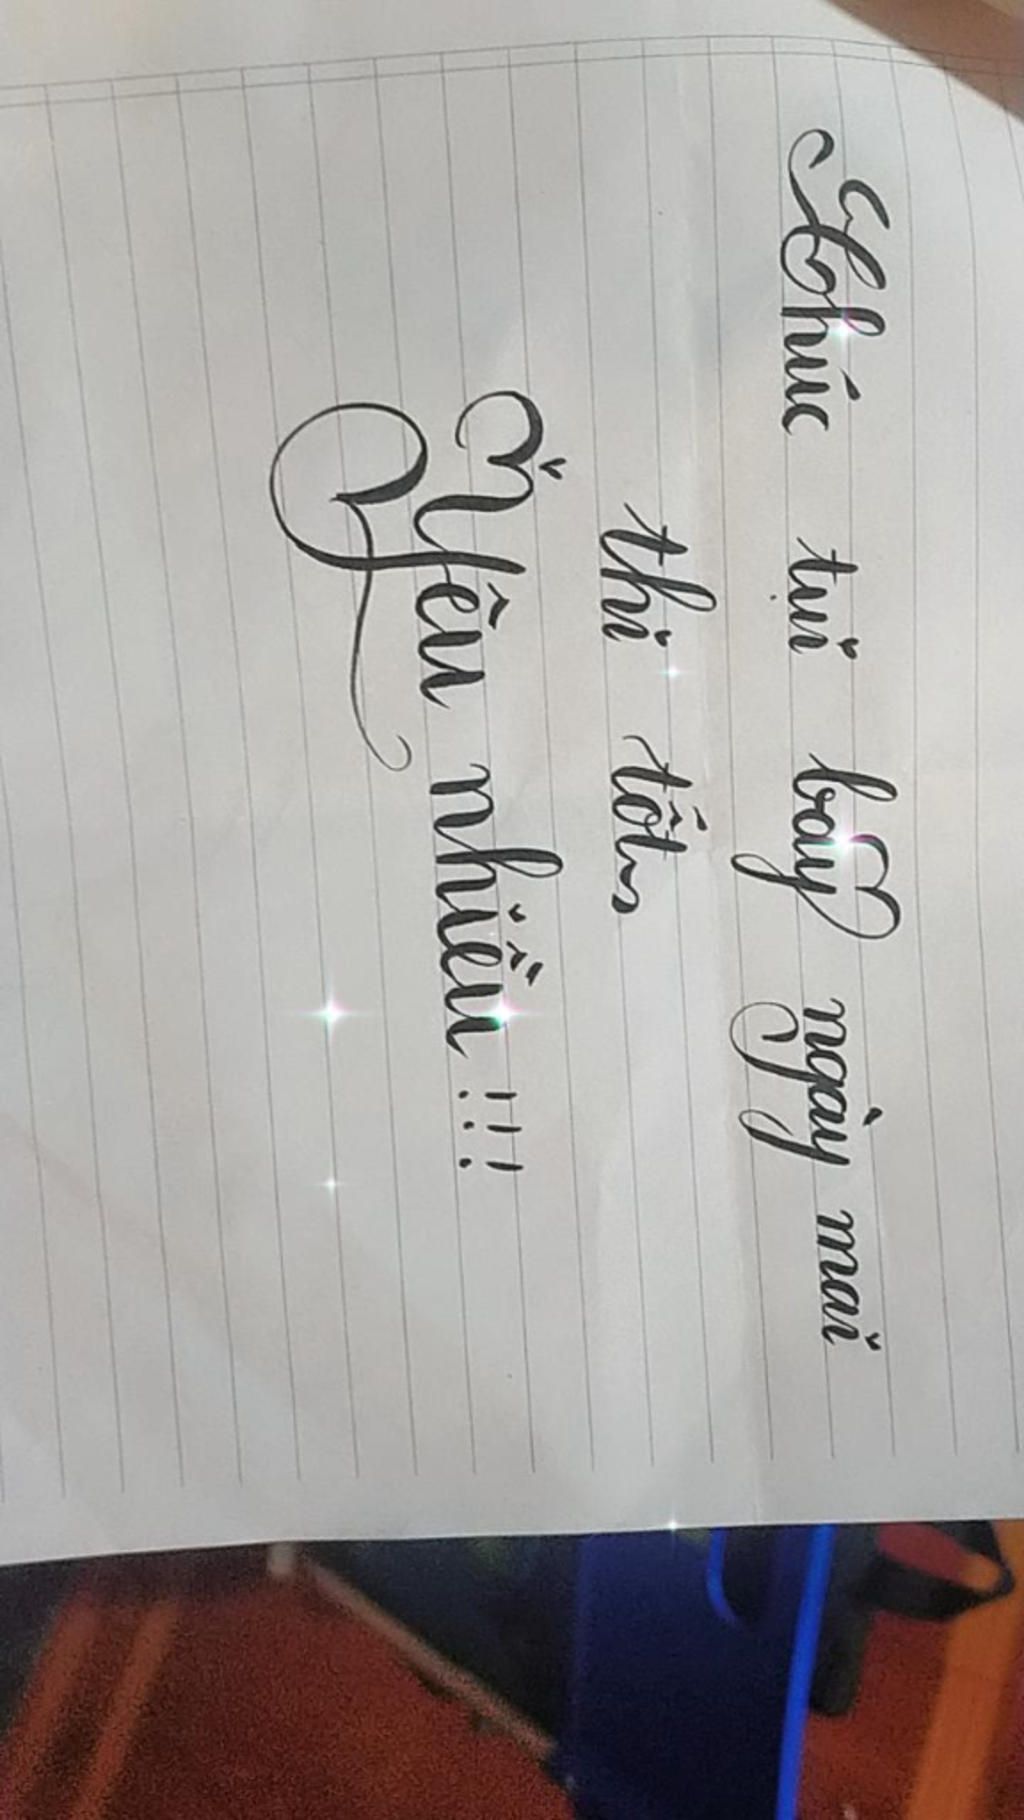 Chúc tụi bay ngày mai
thi tốt
Yêu nhiều!!!